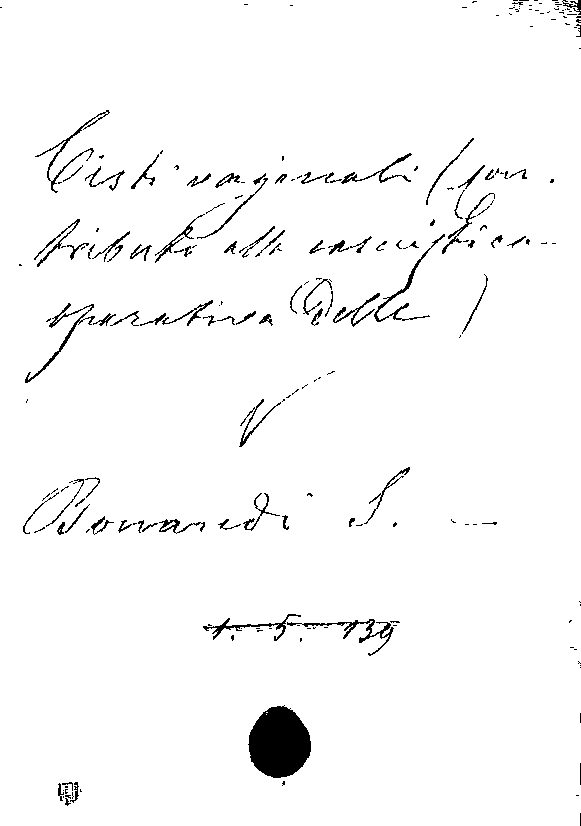 Cisti vaginali (con-
tributo alla casuistica
operativa delle)
V
Bonardi S. —
1. 5. 139